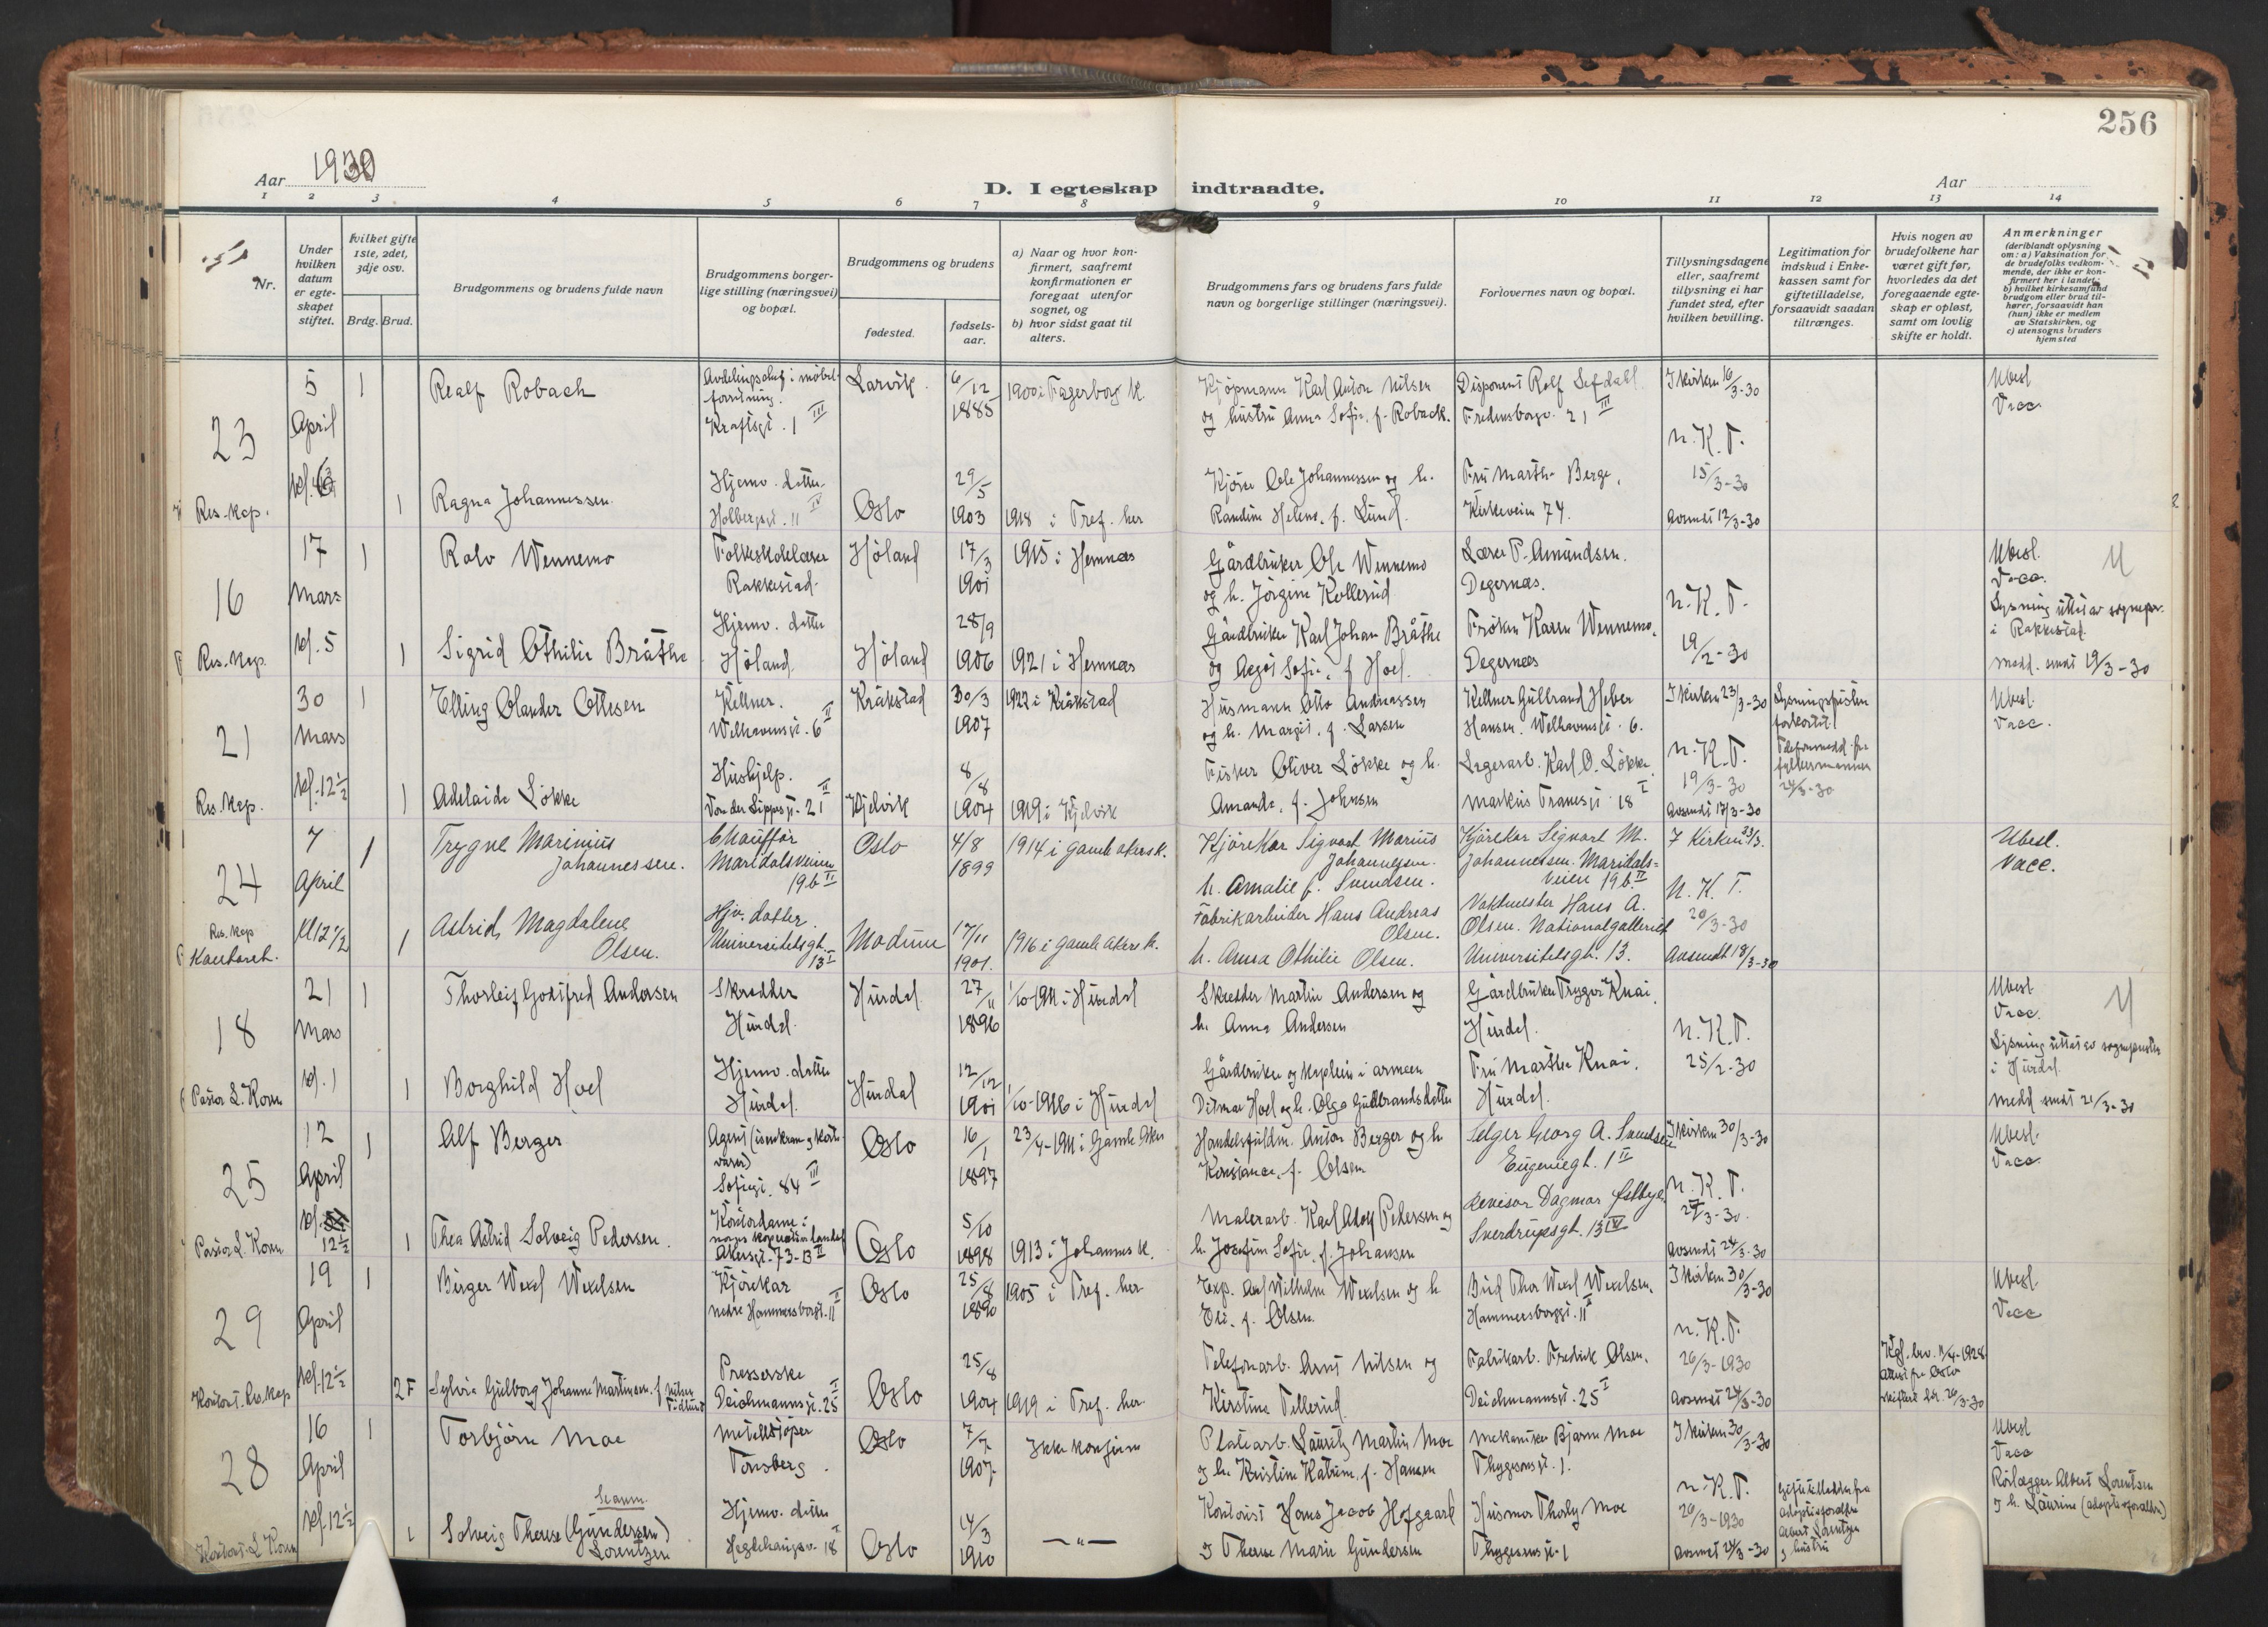 256
Aar 1930
D. I egteskap indtraadte.
Aar
1 2 3 4 5 6 7 8 9 10 11 12 13 14
Nr.
Under hvilken datum er egteskapet stiftet.
Hvilket gifte 1ste, 2det, 3dje osv.
Brdg. Brud.
Brudgommens og brudens fulde navn
Brudgommens borgerlige stilling (næringsvei) og bopæl.
Brudgommens og brudens
fødested.
fødselsaar.
a) Naar og hvor konfirmert, saafremt konfirmationen er foregaat utenfor sognet, og
b) hvor sidst gaat til alters.
Brudgommens fars og brudens fars fulde navn og borgerlige stillinger (næringsvei).
Forlovernes navn og bopæl.
Tillysningsdagene eller, saafremt tillysning ei har fundet sted, efter hvilken bevilling.
Legitimation for indskud i Enkekassen samt for giftetilladelse, forsaavidt saadan tiltrænges.
Hvis nogen av brudefolkene har været gift før, hvorledes da det foregaaende egteskap er opløst, samt om lovlig skifte er holdt.
Anmerkninger
(deriblandt oplysning om: a) Vaksination for de brudefolks vedkommende, der ikke er konfirmert her i landet,
b) hvilket kirkesamfund brudgom eller brud tilhører, forsaavidt han (hun) ikke er medlem av Statskirken, og
c) utensogns bruders hjemsted
23 Res. kap.
5 April
1 Realf Robach
Avdelingschef i møbelforretning. Kraftsgt. 1 III
Larvik 6/12 1885
1900 i Fagerborg K.
Kjøpmann Karl Anton Nilsen og hustru Anna Sofie, f. Roback.
Disponent Rolf Sefdahl Fredensborgv. 21 III
I kirken 16/3-30
N.K.T. 15/3-30
Avsendt 12/3-30
Ubesl. Vacc.
1 Ragna Johannessen
Hjemv. datter Holbergsgt. 11 IV
Oslo 29/5 1903
1918 i Tref. her
Kjører Ole Johannessen og h. Randine Helene, f. Lund.
Fru Marthe Berge, Kirkeveien 74.
16 Res. kap.
17 Mars kl. 5
1 Rolv Wennemo
Folkeskolelærer Rakkestad
Høland 17/3 1901
1915 i Hemnæs
Gårdbruker Ole Wennemo og h. Jørgine Kollerud
Lærer P. Amundsen. Degernæs.
N.K.T. 19/2-30
Ubesl. Vacc.
Lysning uttat av sognepr. i Rakkestad.
Medd. sendt 19/3-30
1 Sigrid Othilie Bråthe
Hjemv. datter Høland
Høland 28/9 1906
1921 i Hemnæs
Gårdbruker Karl Johan Bråthe og Aagot Sofie, f. Hoel.
Frøken Karen Wennemo, Degernæs
21 Res. kap.
30 Mars kl. 12½
1 Elling Olander Ottesen
Kellner. Welhavensgt. 6 II
Kråkstad 30/3 1907
1922 i Kråkstad
Husmann Otto Andreassen og h. Margit, f. Larsen
Kellner Gulbrand Heber Hansen. Welhavensgt. 6.
I kirken 23/3-30
N.K.T. 19/3-30
Avsendt 17/3-30
Lysningsfristen forkortet. Telefonmedd. fra fylkesmannen 24/3-30
Ubesl. Vacc.
1 Adelaide Løkke
Hushjelp. Von der Lippesgt. 21 II
Kjelvik 8/8 1904
1919 i Kjelvik
Fisker Oliver Løkke og h. Amanda, f. Johnsen
Lagerarb. Karl O. Løkke Markus Thranesgt. 18 I
24 Res. kap Kantoret.
7 April Kl 12½
1 Trygve Marinius Johannessen.
Chauffør Maridalsveien 19b II
Oslo 4/8 1899
1914 i Gamle Akers k.
Kjørekar Sigvart Marius Johannessen. h. Amalie f. Svendsen.
Kjørekar Sigvart M. Johannessen. Maridalsveien 19b II
I Kirken 23/3.
N.K.T. 20/3-30
Avsendt 18/3-30
Ubesl. Vacc.
1 Astrid Magdalene Olsen.
Hjv. datter. Universitetsgt. 13 I
Modum 17/11 1901.
1916 i Gamle Akers k.
Fabrikarbeider Hans Andreas Olsen. h. Anna Othilie Olsen.
Vaktmester Hans A. Olsen. Nationalgalleriet Universitetsgt. 13.
18 Pastor L. Korn
21 Mars kl. 1
1 Thorleif Godtfred Andersen
Skredder Hurdal.
Hurdal 27/11 1896
1/10-1911 i Hurdal
Skredder Martin Andersen og h. Anna Andersen
Gårdbruker Trygve Knai, Hurdal.
N.K.T. 25/2-30
Ubesl. Vacc.
Lysning uttat av sognepresten i Hurdal.
Medd sendt 21/3-30
1 Borghild Hoel
Hjemv. datter Hurdal.
Hurdal 12/12 1901
1/10-1916 i Hurdal
Gårdbruker og kaptein i armeen Ditmar Hoel og h. Olga Gulbrandsdatter
Fru Marthe Knai, Hurdal.
25 Pastor L. Korn
12 April kl. 12½
1 Alf Berger
Agent (isenkram og kortevarer) Sofiegt. 84 III
Oslo 16/1 1897
23/4-1911 i Gamle Aker
Handelsfuldm. Anton Berger og h. Konstance, f. Olsen
Selger Georg A. Svendsen Eugeniegt. 1 II
I kirken 30/3-30
N.K.T. 27/3-30.
Avsendt 24/3-30
Ubesl. Vacc.
1 Thea Astrid Solveig Pedersen.
Kontordame i Akersgt. 73-B II
Oslo 5/10 1898
1913 i Johannes K.
Malerarb. Karl Adolf Pedersen og h. Josefine Sofie, f. Johansen
Revisor Dagmar Østbye Sverdrupsgt. 13 IV
29 Kontorist. Res. kap
19 April kl. 12½
1 Birger Wexel Wexelsen
Kjørekar Nedre Hammersborggt. 11 II
Oslo 25/8 1890
1905 i Tref. her
Exp. Wilhelm Wexelsen og h. Eli, f. Olsen.
Bud Thor Wexel Wexelsen, Hammersborggt. 11 II
I kirken 30/3-30
N.K.T. 26/3-1930
Avsendt 24/3-30
Ubesl. Vacc
2 F Sylvia Gulborg Johanne Martinsen. f. Nilsen
Presserske Deichmannsgt. 25 I
Oslo 25/8 1904
1919 i Tref. her
Telefonarb. Arnt Nilsen og Kirstine Tellerud
Fabrikarb. Fredrik Olsen, Deichmannsgt. 25 I
Kgl. bev. 11/4-1928 Attest fra Oslo skifterett 26/3-30
28 Kontorist. L Korn
16 April kl. 12½
1 Torbjørn Moe
Metallstøper Tønsberg.
Oslo 7/7 1907.
Ikke konfirm
Platearb. Lauritz Martin Moe og h. Kristine Katrine, f. Hansen
Mekaniker Bjarne Moe Thygesonsgt. 1.
I kirken 30/3-30
N.K.T. 26/3-1930
Avsendt 24/3-30
Giftetilladelse fra Adoptivforeldre Albert Lorentzen og hustru
Ubesl Vacc
Rørlegger Albert Lorentzen og h. Laurine (adoptivforeldre)
1 Solveig Therese (Gundersen) Lorentzen
Hjemv. datter Hegdehaugsv. 18 I
Oslo 14/3 1910
— " —
Kontorist Hans Jacob Hofgaard og Therese Marie Gundersen
Husmor Thorly Moe Thygesonsgt. 1